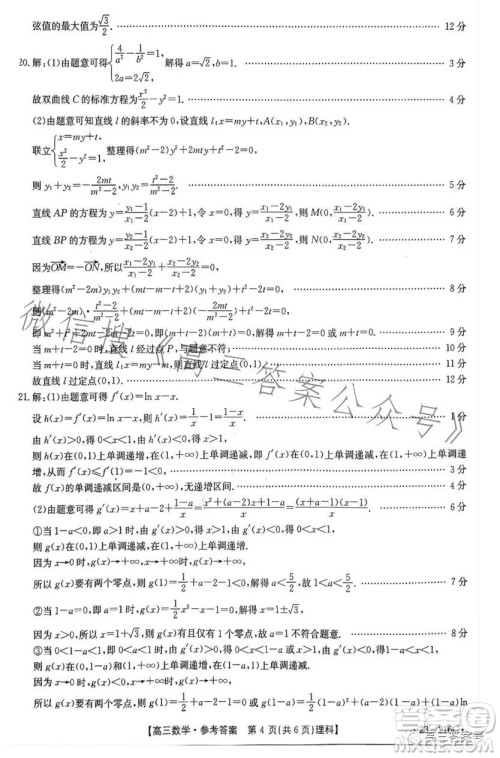 弦值的最大值为√3/2. 12分
20.解:(1)由题意可得{4/a²-1/b²=1, 2a=2√2, 解得a=√2,b=1. 3分
故双曲线C的标准方程为x²/2-y²=1. 4分
(2)由题意可知直线l的斜率不为0,设直线l:x=my+t,A(x₁,y₁),B(x₂,y₂).
联立{x=my+t, x²/2-y²=1, 整理得(m²-2)y²+2mty+t²-2=0,
则y₁+y₂=-2mt/(m²-2),y₁y₂=(t²-2)/(m²-2). 5分
直线AP的方程为y=(y₁-1)/(x₁-2)(x-2)+1,令x=0,得y=(x₁-2y₁)/(x₁-2),则M(0,(x₁-2y₁)/(x₁-2)).
直线BP的方程为y=(y₂-1)/(x₂-2)(x-2)+1,令x=0,得y=(x₂-2y₂)/(x₂-2),则N(0,(x₂-2y₂)/(x₂-2)). 6分
因为OM=-ON,所以(x₁-2y₁)/(x₁-2)+(x₂-2y₂)/(x₂-2)=0,
整理得(m²-2m)y₁y₂+(mt-m-t+2)(y₁+y₂)+t²-2t=0, 8分
则(m²-2m)·(t²-2)/(m²-2)+(mt-m-t+2)(-2mt/(m²-2))+t²-2t=0,
9分
当m+t-2=0时,直线l经过点P,与题意不符;
当m+t=0时,直线l:x=my+t=my-m 11分
故直线l过定点(0,1). 12分
21.解:(1)由题意可得f′(x)=ln x-x.
设h(x)=f′(x)=ln x-x,则h′(x)=1/x-1=(1-x)/x. 1分
由h′(x)>0,得0<x<1,由h′(x)<0,得x>1,
则f′(x)在(0,1)上单调递增,在(1,+∞)上单调递减,
从而f′(x)≤f′(1)=-1<0. 3分
故f(x)的单调递减区间是(0,+∞),无递增区间. 4分
(2)由题意可得g′(x)=x+a-2+(1-a)/x=(x²+(a-2)x+1-a)/x=((x+a-1)(x-1))/x. 6分
①当1-a<0,即a>1时,由g′(x)>0,得x>1,由g′(x)<0,得0<x<1,
则g(x)在(0,1)上单调递减,在(1,+∞)上单调递增.
因为x→0时,g(x)→+∞,x→+∞时,g(x)→+∞,
所以g(x)要有两个零点,则g(1)=1/2+a-2-1<0,解得a<5/2,故1<a<5/2. 7分
②当1-a=0,即a=1时,g(x)=1/2x²-x-1.
因为x>0,所以x=1+√3,所以a=1不符合题意. 8分
③当0<1-a<1,即0<a<1时,由g′(x)>0,得0<x<1-a或x>1,由g′(x)<0,得1-a<x<1,
则g(x)在(0,1-a)和(1,+∞)上单调递增,在(1-a,1)上单调递减.
因为x→0时,g(x)→-∞,x→+∞时,g(x)→+∞,
所以g(x)要有两个零点,则g(1)=1/2+a-2-1=0或g(1-a)=1/2(1-a)²+(a-2)(1-a)+(1-a)ln
【高三数学·参考答案 第4页(共6页)理科】
微信搜《高三答案公众号》